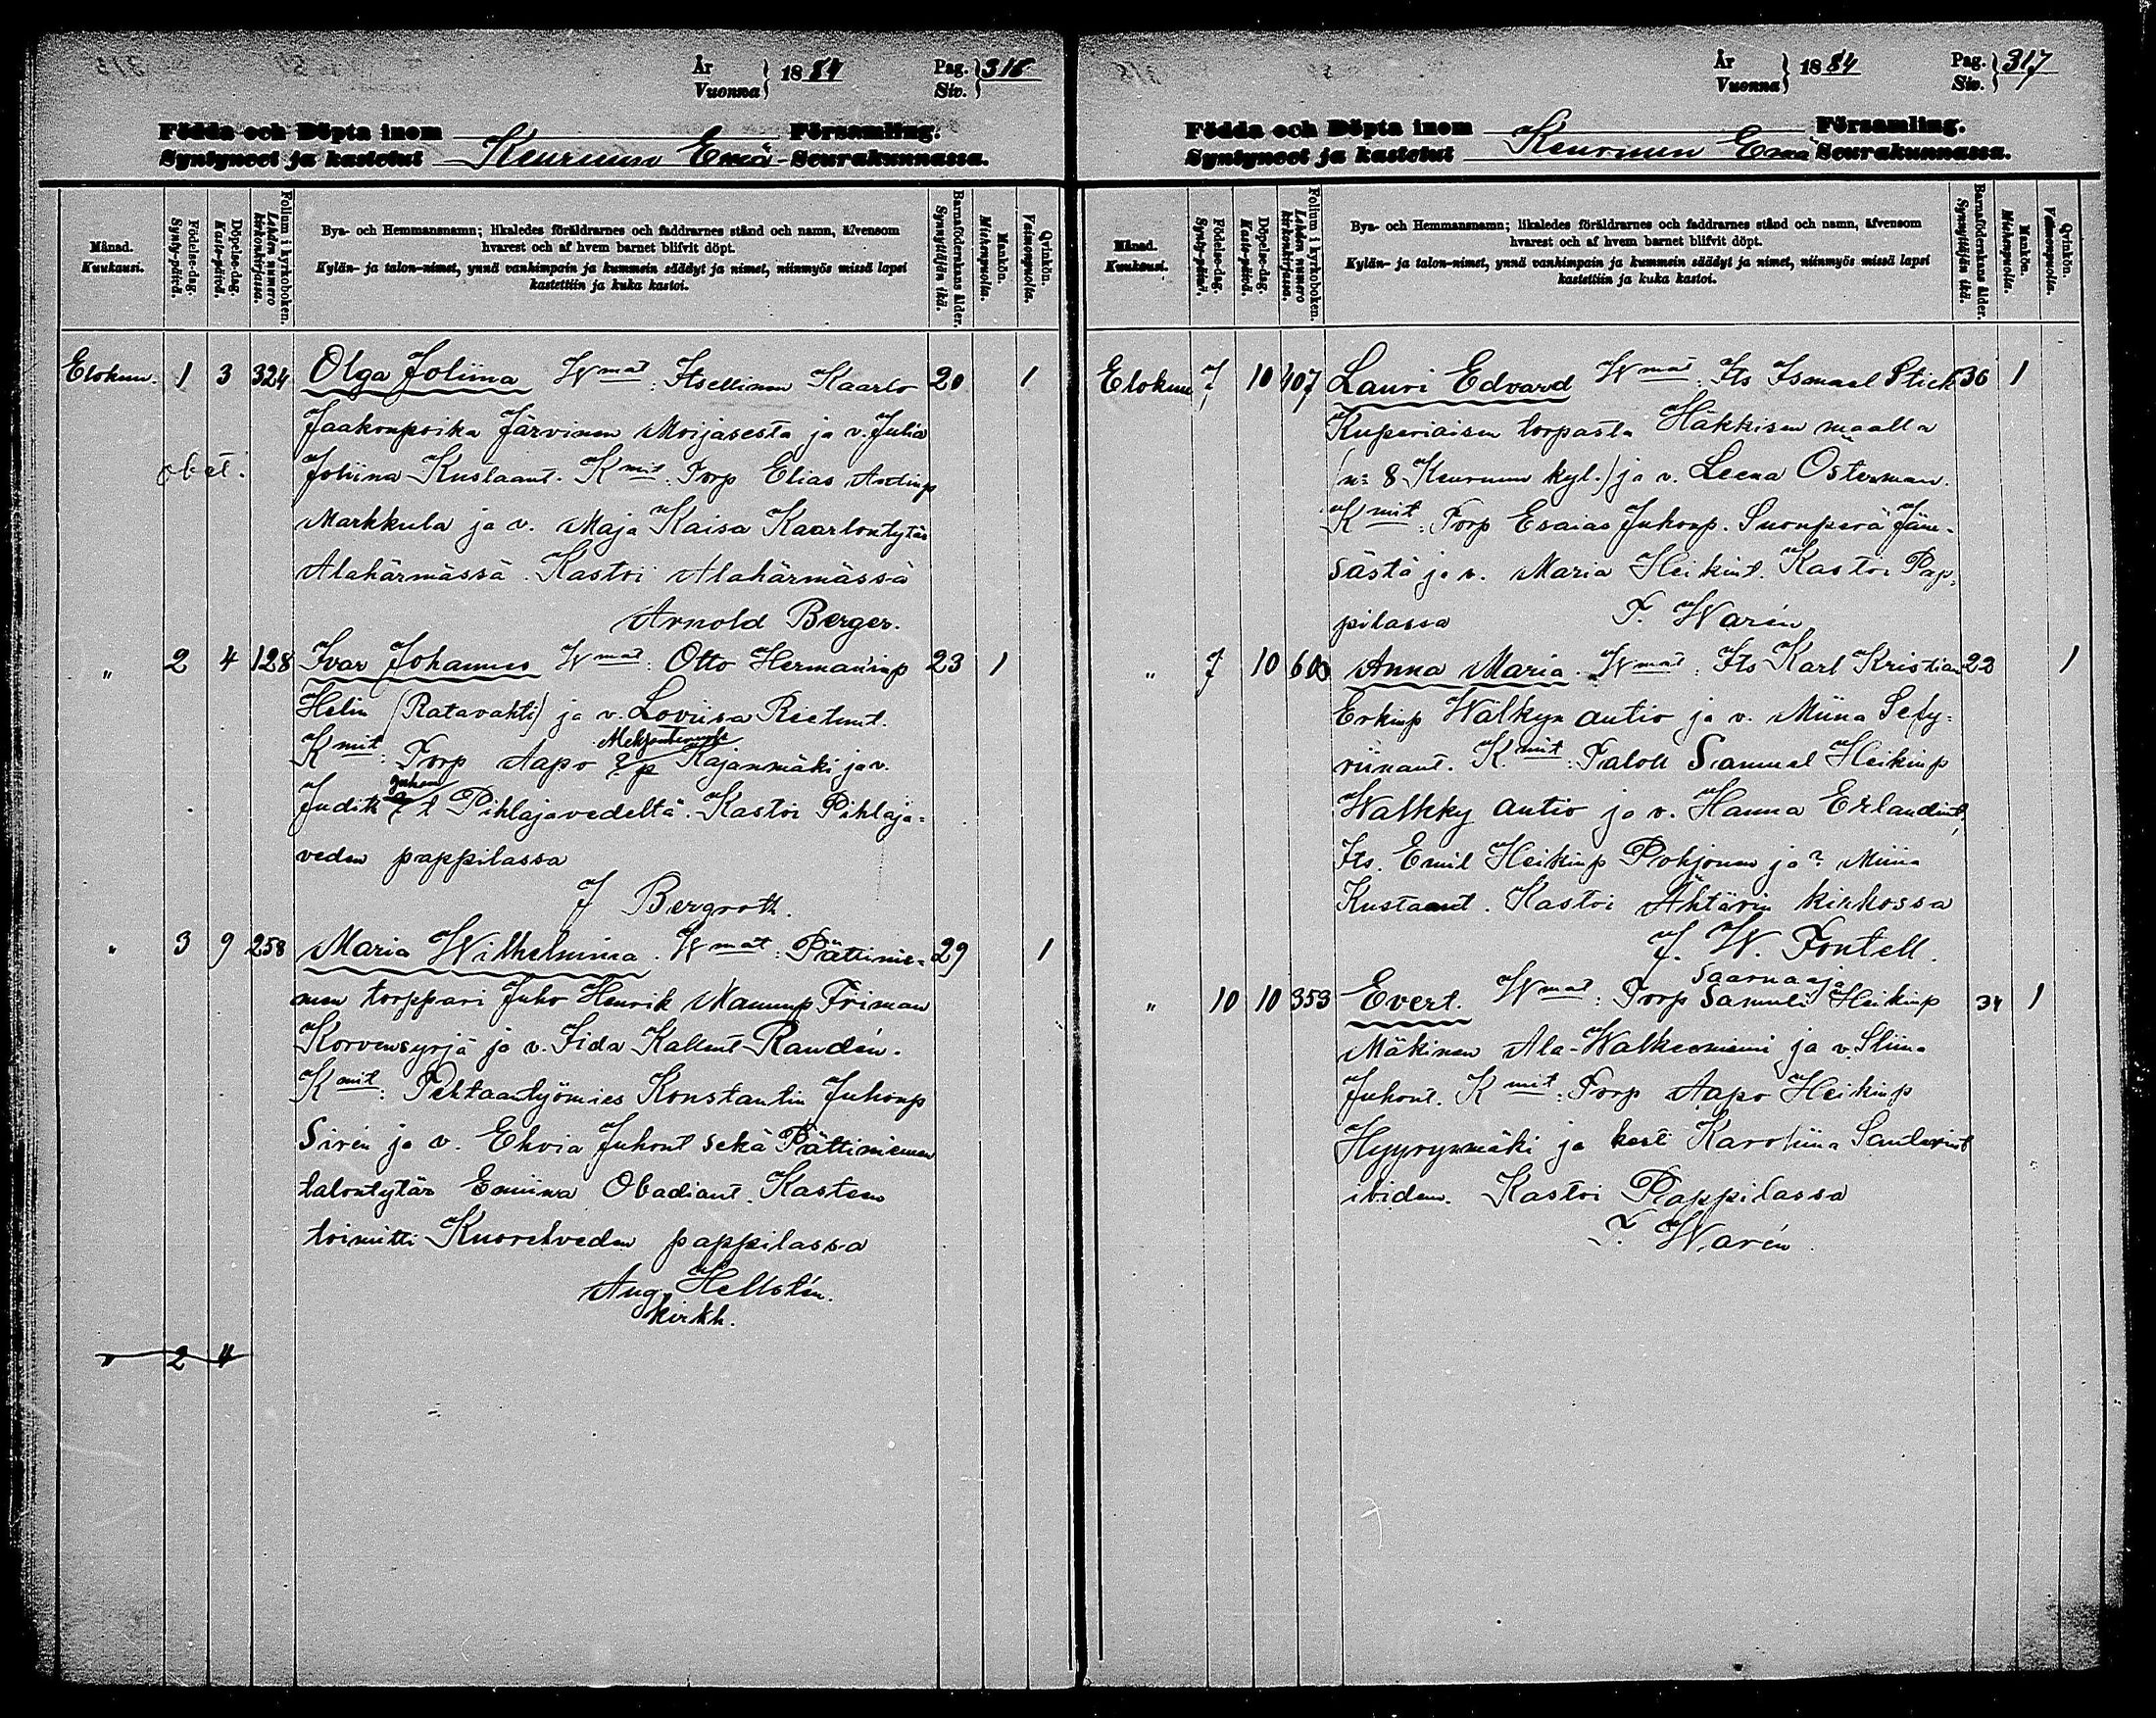 År Vuonna } 1884 Pag. Siv. } 316
Födda och Döpta inom Församling.
Syntyneet ja kastetut Keuruun Emä- Seurakunnassa.
Månad. Kuukausi.
Födelse-dag. Synty-päivä.
Döpelse-dag. Kaste-päivä.
Folium i kyrkoboken. Lehden numero kirkonkirjassa.
Bya- och Hemmansnamn; likaledes föräldrarnes och faddrarnes stånd och namn, äfvensom
hvarest och af hvem barnet blifvit döpt.
Kylän- ja talon-nimet, ynnä vanhimpain ja kummein säädyt ja nimet, niinmyös missä lapsi
kastettiin ja kuka kastoi.
Barnaföderskans ålder. Synnyttäjän ikä.
Mankön. Miehenpuolia.
Qvinkön. Vaimonpuolia.
Elokuu. 1 3 324 Olga Joliina Wmat: Itsellinen Kaarlo 20 1
Jaakonpoika Järvinen Moijasesta ja v. Julia
obet. Joliina Kustaant. Kmit: Torp Elias Antinp
Markkula ja v. Maja Kaisa Kaarlontytär
Alahärmässä. Kastoi Alahärmässä
Arnold Berger.
" 2 4 128 Ivar Johannes Wmat: Otto Hermaninp 23 1
Helin (Ratavahti) ja v. Loviisa Rietunt.
Kmit: Torp Aapo Kajanmäki ja v.
Judith Juhon t Pihlajavedeltä. Kastoi Pihlaja-
veden pappilassa
J Bergroth.
" 3 9 258 Maria Wilhelmina. Wmat: Pättinie- 29 1
men torppari Juho Henrik Mananp Friman
Korvensyrjä ja v. Iida Kallent Randén.
Kmit: Tehtaantyömies Konstantin Juhonp
Sirén ja v. Ehvia Juhont sekä Pättiniemen
talontytär Emiina Obadiant. Kasteen
toimitti Kuoreveden pappilassa
Aug. Hellstén.
kirkh.
" 2 4
År Vuonna } 1884 Pag. Siv. } 317
Födda och Döpta inom Församling.
Syntyneet ja kastetut Keuruun Emä Seurakunnassa.
Månad. Kuukausi.
Födelse-dag. Synty-päivä.
Döpelse-dag. Kaste-päivä.
Folium i kyrkoboken. Lehden numero kirkonkirjassa.
Bya- och Hemmansnamn; likaledes föräldrarnes och faddrarnes stånd och namn, äfvensom
hvarest och af hvem barnet blifvit döpt.
Kylän- ja talon-nimet, ynnä vanhimpain ja kummein säädyt ja nimet, niinmyös missä lapsi
kastettiin ja kuka kastoi.
Barnaföderskans ålder. Synnyttäjän ikä.
Mankön. Miehenpuolia.
Qvinkön. Vaimonpuolia.
Elokuu 7 10 407 Lauri Edvard Wmat: Its Ismael Stick 36 1
Kuperiaisen torpasta Häkkisen maalla
(n: 8 Keuruun kyl.) ja v. Leena Österman.
Kmit: Torp Esaias Juhonp. Suonperä Jäm-
sästä ja v. Maria Heikint. Kastoi Pap-
pilassa F. Warén
" 7 10 600 Anna Maria. Wmat: Its Karl Kristian 23 1
Erkinp Walkyn autio ja v. Miina Sefy-
riinant. Kmit: Taloll Samuel Heikinp
Walkky autio ja v. Hanna Erlandint,
Its. Emil Heikinp Pohjonen ja ? Miina
Kustaant. Kastoi Ähtärin kirkossa
J. W. Fontell.
saarnaaja
" 10 10 353 Evert. Wmat: Torp Samuli Heikinp 34 1
Mäkinen Ala-Walkeeniemi ja v. Sliina
Juhont. Kmit: Torp Aapo Heikinp
Hyyrynmäki ja Karoliina
ibidem. Kastoi Pappilassa
F. Warén.